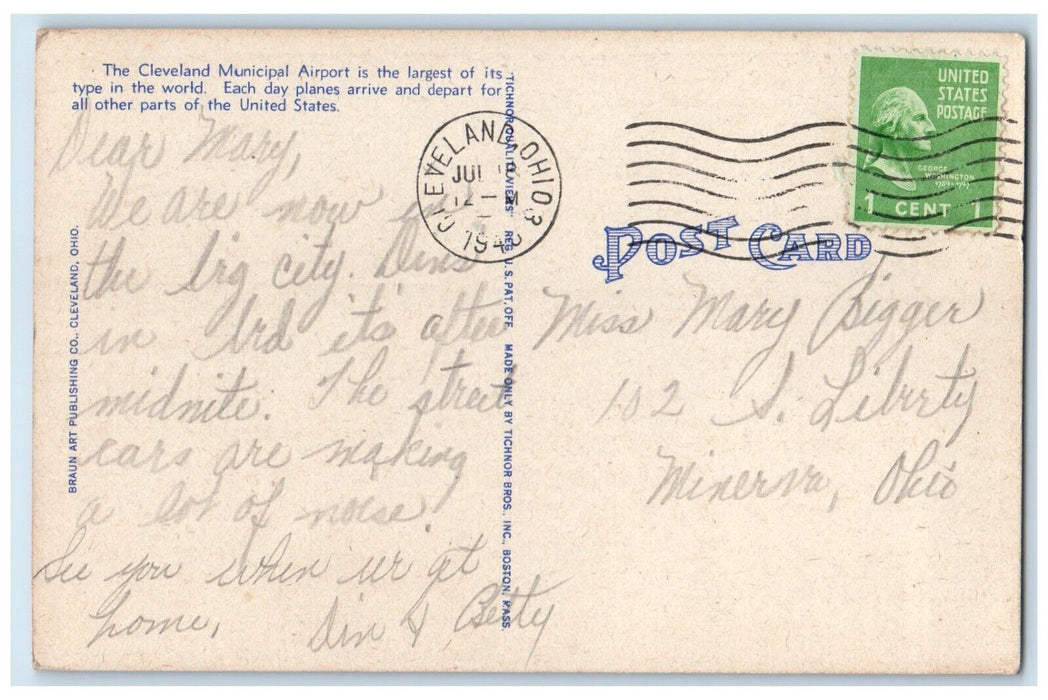 The Cleveland Municipal Airport is the largest of its
type in the world. Each day planes arrive and depart for
all other parts of the United States.
Dear Mary,
We are now in
the big city. Dins
in bed its after
midnite. The street
cars are making
a lot of noise.
See you when we get
home,
Din & Betty
BRAUN ART PUBLISHING CO., CLEVELAND, OHIO.
"TICHNOR QUALITY VIEWS" REG. U.S. PAT. OFF. MADE ONLY BY TICHNOR BROS., INC., BOSTON, MASS.
CLEVELAND, OHIO 3
JUL
12 - M
194
UNITED
STATES
POSTAGE
GEORGE
WASHINGTON
1 CENT 1
POST CARD
Miss Mary Bigger
102 S. Liberty
Minerva, Ohio